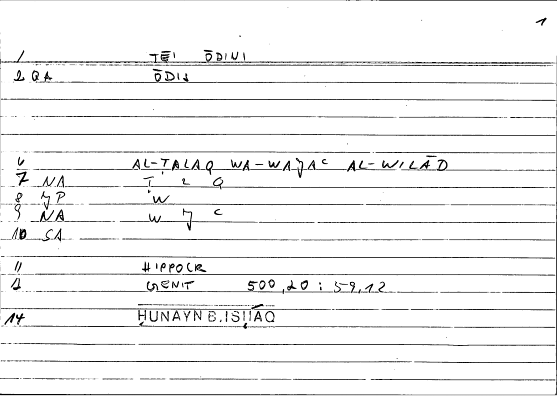 1
1 TĒI ŌDINI
2 QA ŌDIS
6 AL-ṬALAQ WA-WAǦAʿ AL-WILĀD
7 NA Ṭ L Q
8 ǦP W
9 NA W Ǧ ʿ
10 SA
11 HIPPOCR
12 GENIT 500,20 : 59,12
14 ḤUNAYN B. ISḤĀQ